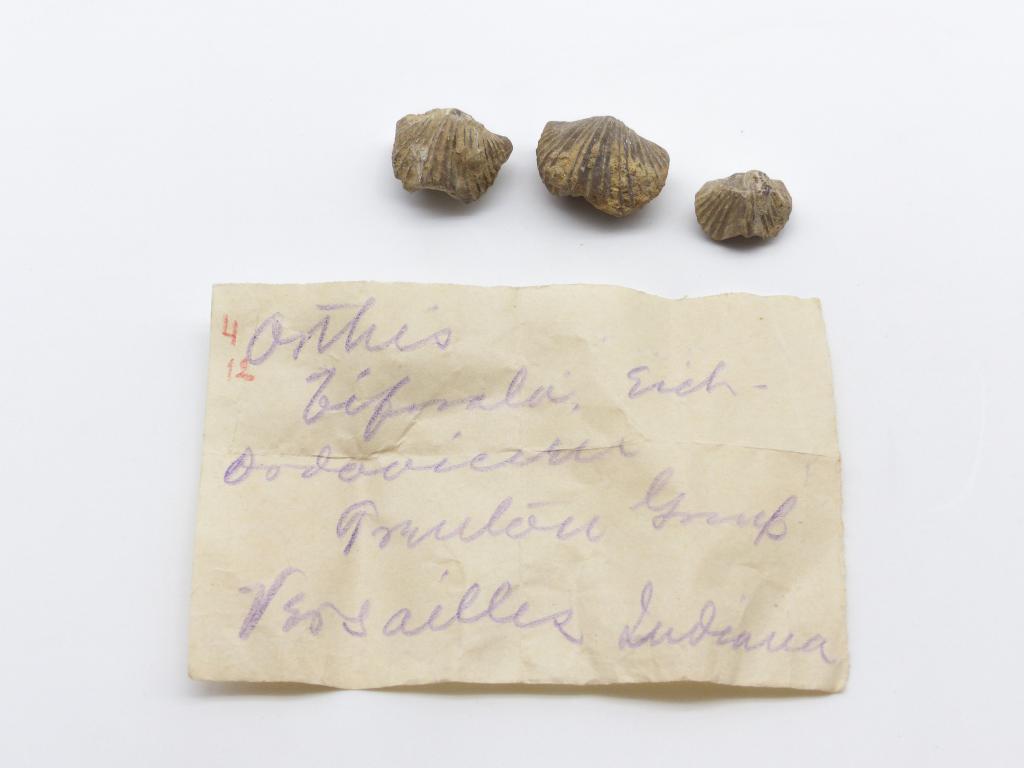 4 Orthis
12
biforala, Eich-
Ordovicum
Trenton Group
Versailles Indiana